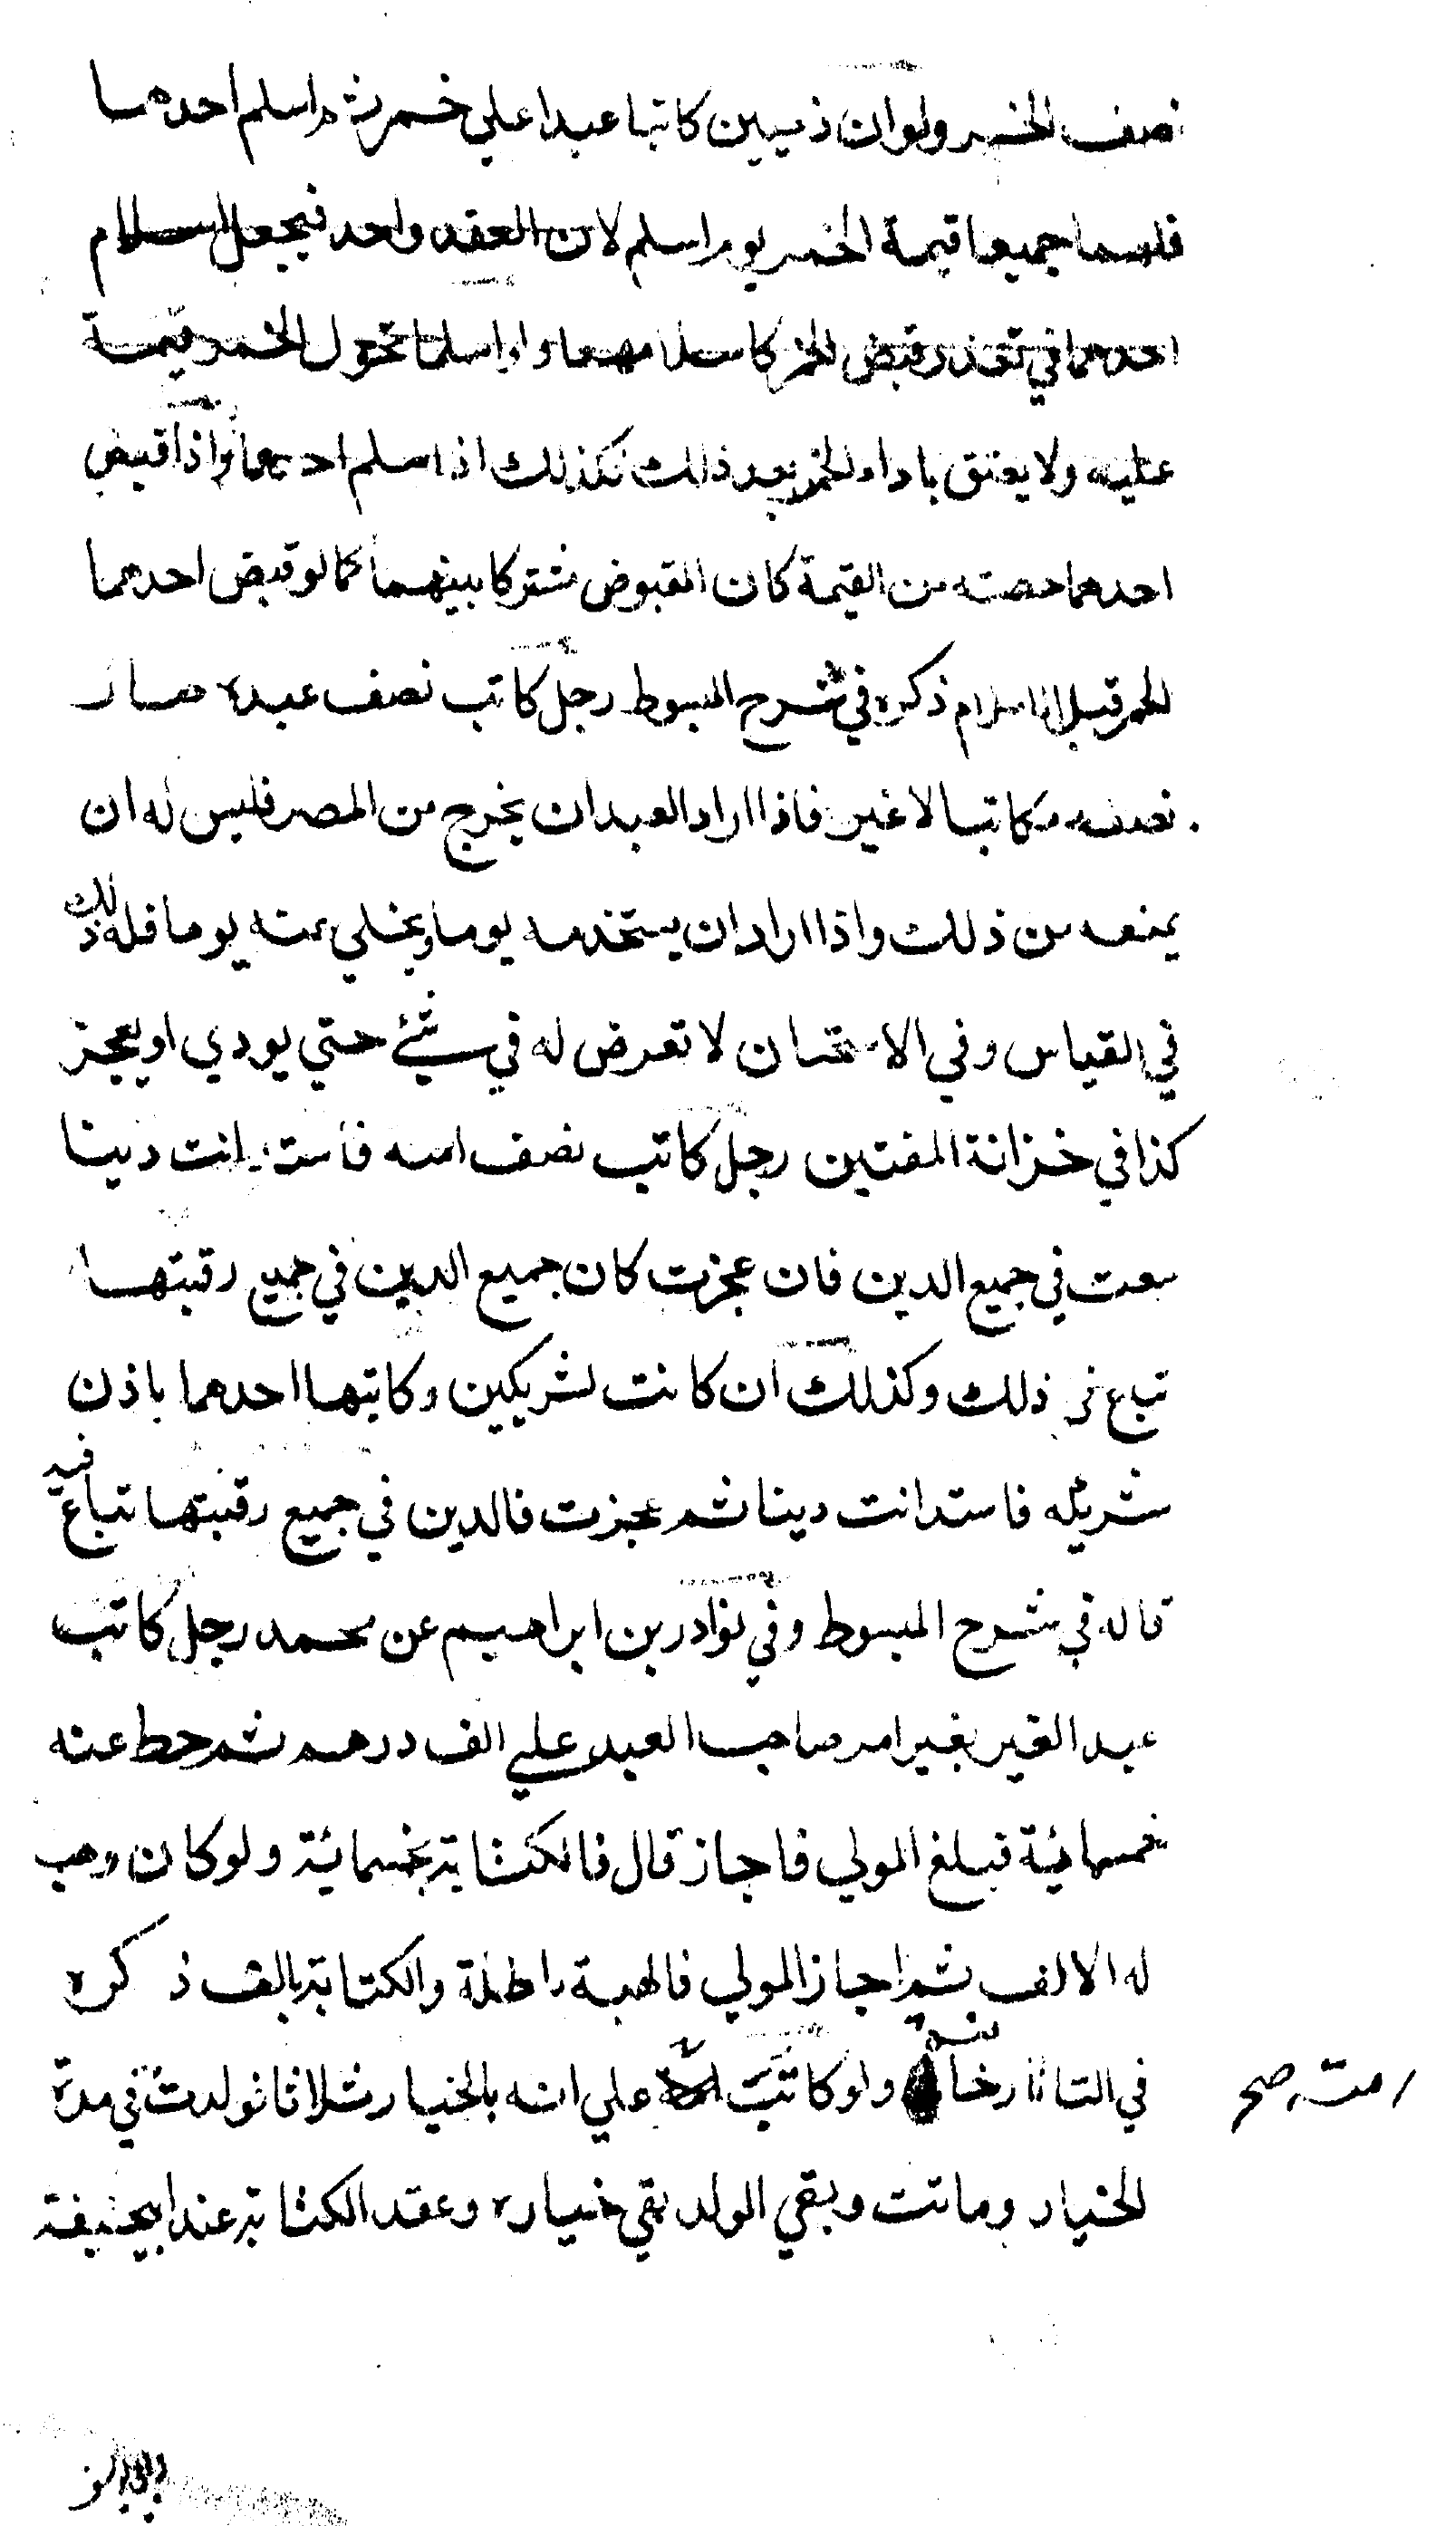 نصف الخمر ولو ان ذميين كاتبا عبدا علي خمر ثم اسلم احدهما
فلهما جميعا قيمة الخمر يوم اسلم لان العقد واحد فيجعل اسلام
احدهما في تعذر قبض الخمر كاسلامهما ولو اسلما تحول الخمر قيمة
عليه ولا يعتق باداء الخمر بعد ذلك فكذلك اذا اسلم احدهما واذا قبض
احدهما حصته من القيمة كان المقبوض مشتركا بينهما كما لو قبض احدهما
الخمر قبل الاسلام ذكره في شرح المبسوط رجل كاتب نصف عبده صار
نصفه مكاتبا لا غير فاذا اراد العبد ان يخرج من المصر فليس له ان
يمنعه من ذلك واذا اراد ان يستخدمه يوما ويخلي عنه يوما فله ذلك
في القياس وفي الاستحسان لا تعرض له في شئ حتي يودي او يعجز
كذا في خزانة المفتين رجل كاتب نصف امته فاستدانت دينا
سعت في جميع الدين فان عجزت كان جميع الدين في جميع رقبتها
تباع في ذلك وكذلك ان كانت لشريكين وكاتبها احدهما باذن
شريكه فاستدانت دينا ثم عجزت فالدين في جميع رقبتها تباع فيه
قاله في شرح المبسوط وفي نوادر بن ابراهيم عن محمد رجل كاتب
عبد الغير بغير امر صاحب العبد علي الف درهم ثم حط عنه
خمسمائية فبلغ المولي فاجاز قال فالكتابة بخمسمائية ولو كان وهب
له الالف ثم اجاز المولي فالهبة باطلة والكتابة بالف ذكره
في التاتارخانية ولو كاتب امته علي انه بالخيار ثلاثا فولدت في مدة
امته صح
الخيار وماتت وبقي الولد بقي خياره وعقد الكتابة عند ابيحنيفة